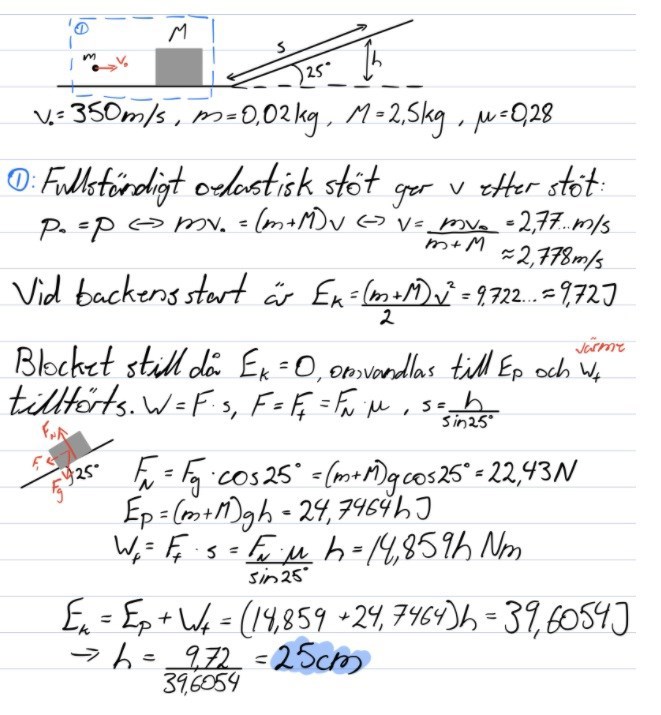 ① M
m v₀ s 25° h
v₀ = 350m/s, m = 0,02kg, M = 2,5kg, μ = 0,28
①: Fullständigt oelastisk stöt ger v efter stöt:
p₀ = p ⟺ mv₀ = (m+M)v ⟺ v = mv₀/(m+M) = 2,77...m/s
≈ 2,778m/s
Vid backens start är Eₖ = (m+M)v²/2 = 9,722... ≈ 9,72J
värme
Blocket still då Eₖ = 0, omvandlas till Eₚ och W_f
tillförts. W = F·s, F = F_f = F_N·μ, s = h/sin25°
F_N F_f F_g 25°
F_N = F_g·cos25° = (m+M)gcos25° = 22,43N
Eₚ = (m+M)gh = 24,7464h J
W_f = F_f·s = F_N μ/sin25° h = 14,859h Nm
Eₖ = Eₚ + W_f = (14,859 + 24,7464)h = 39,6054J
→ h = 9,72/39,6054 = 25cm